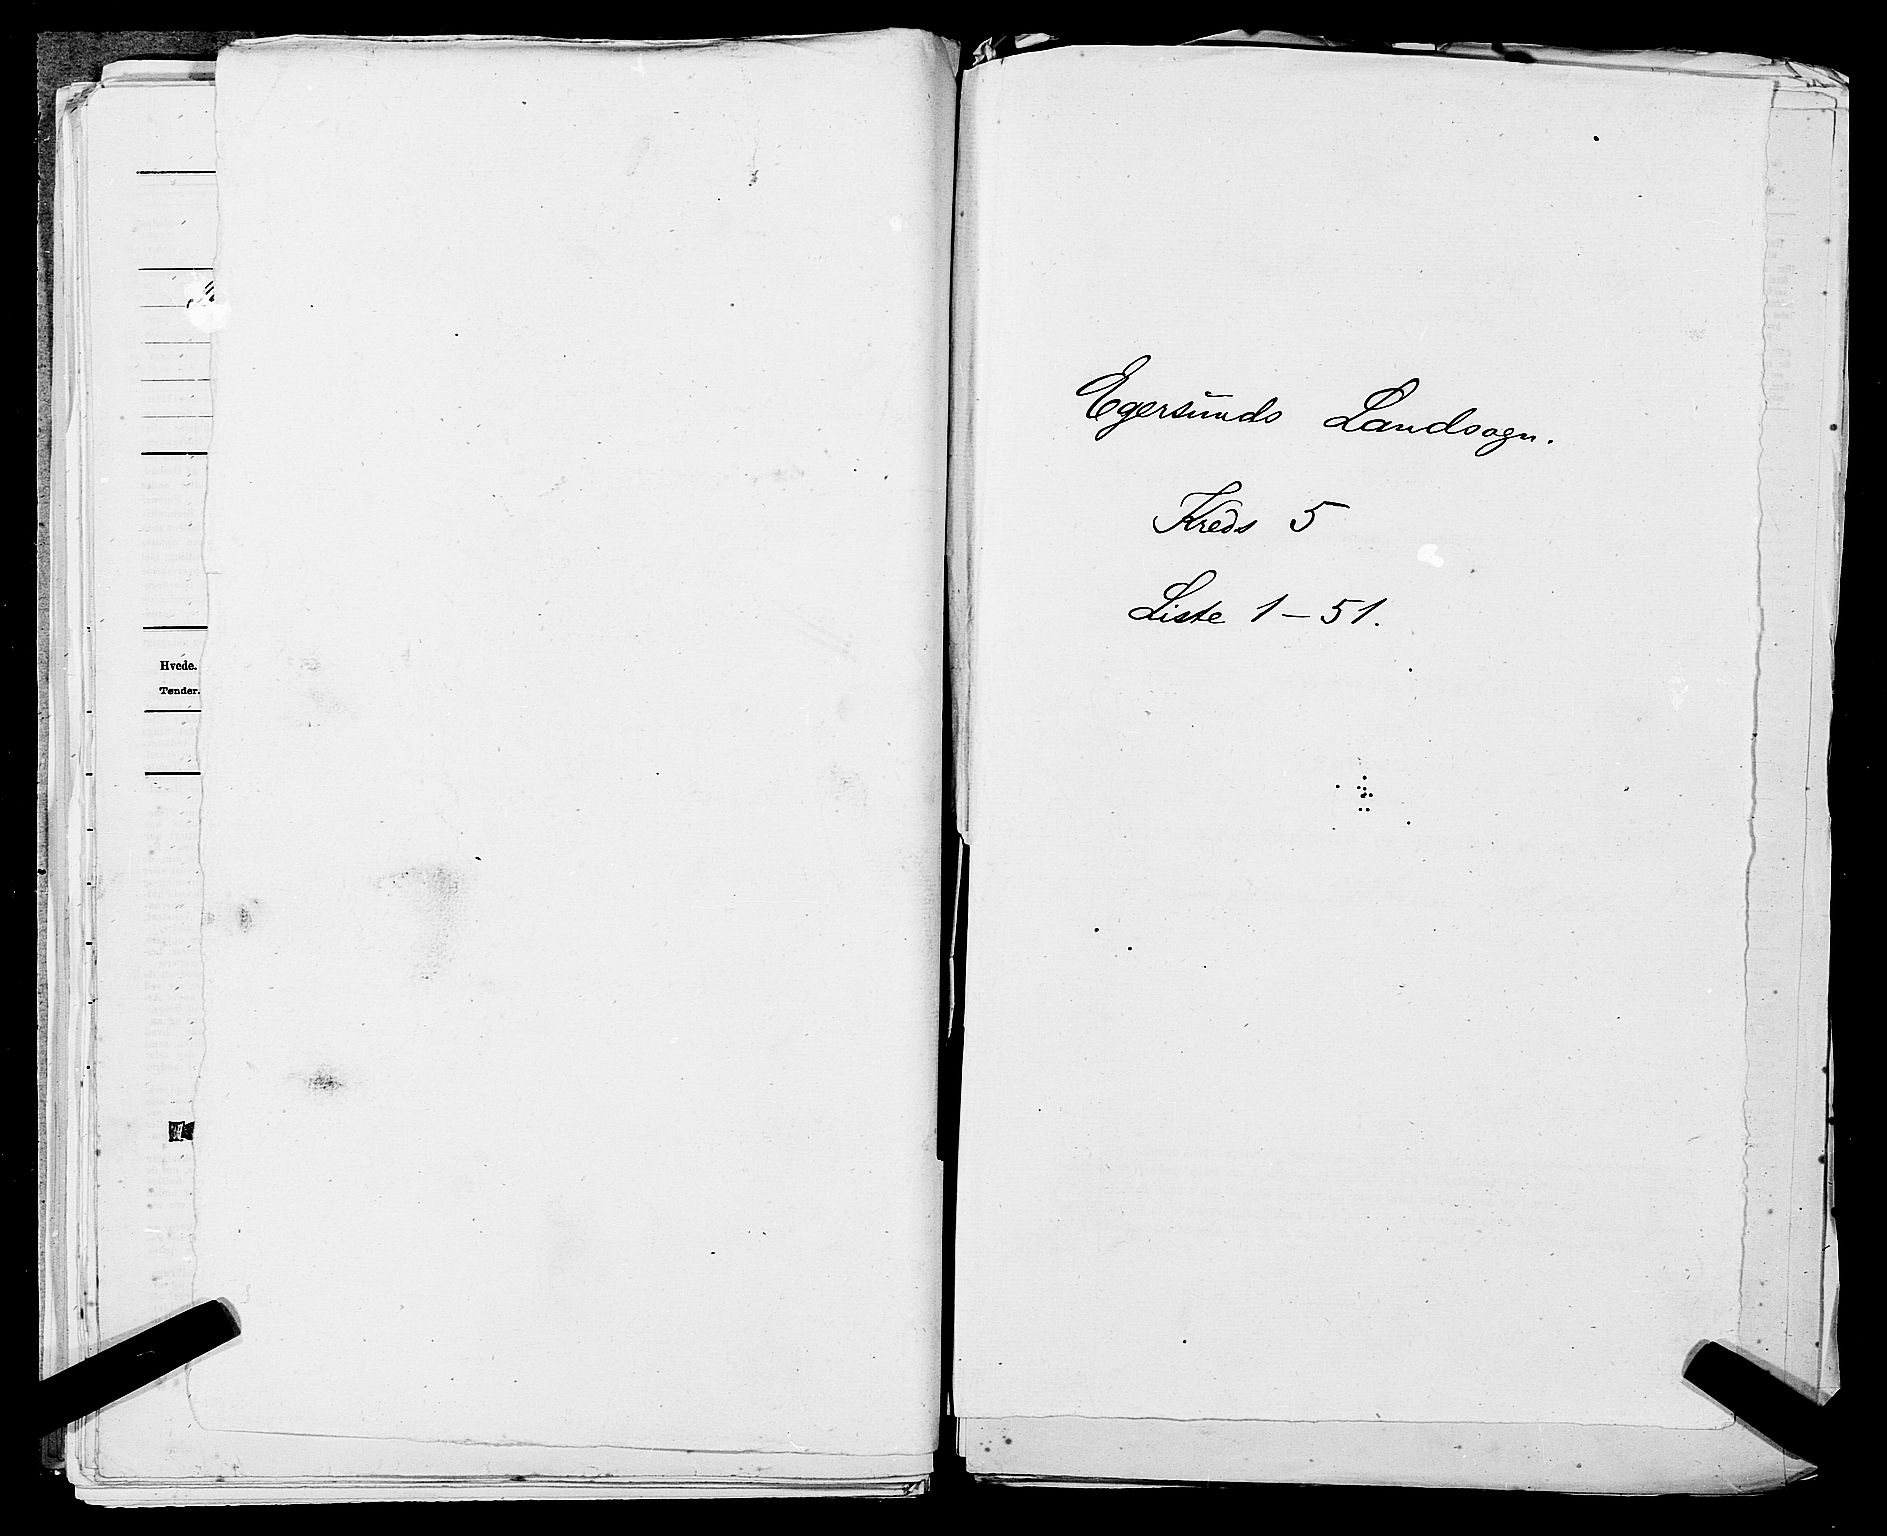 Hvede.
Tønder.
Egersunds Landsogn.
Kreds 5
Liste 1–51.